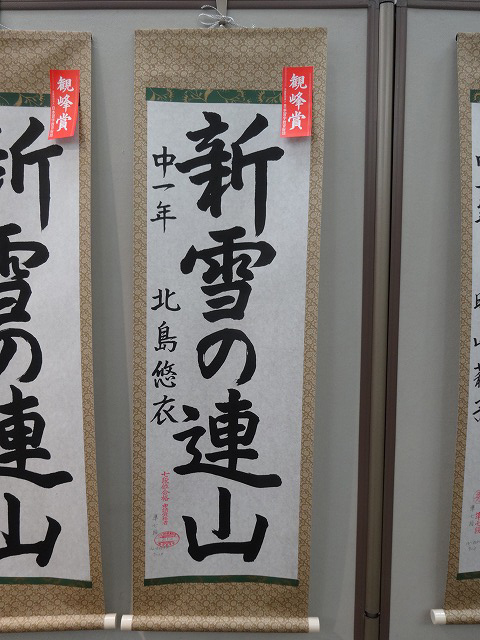 観峰賞
新雪の連山
中一年 北島悠衣
観峰賞
新雪の連山
中一年